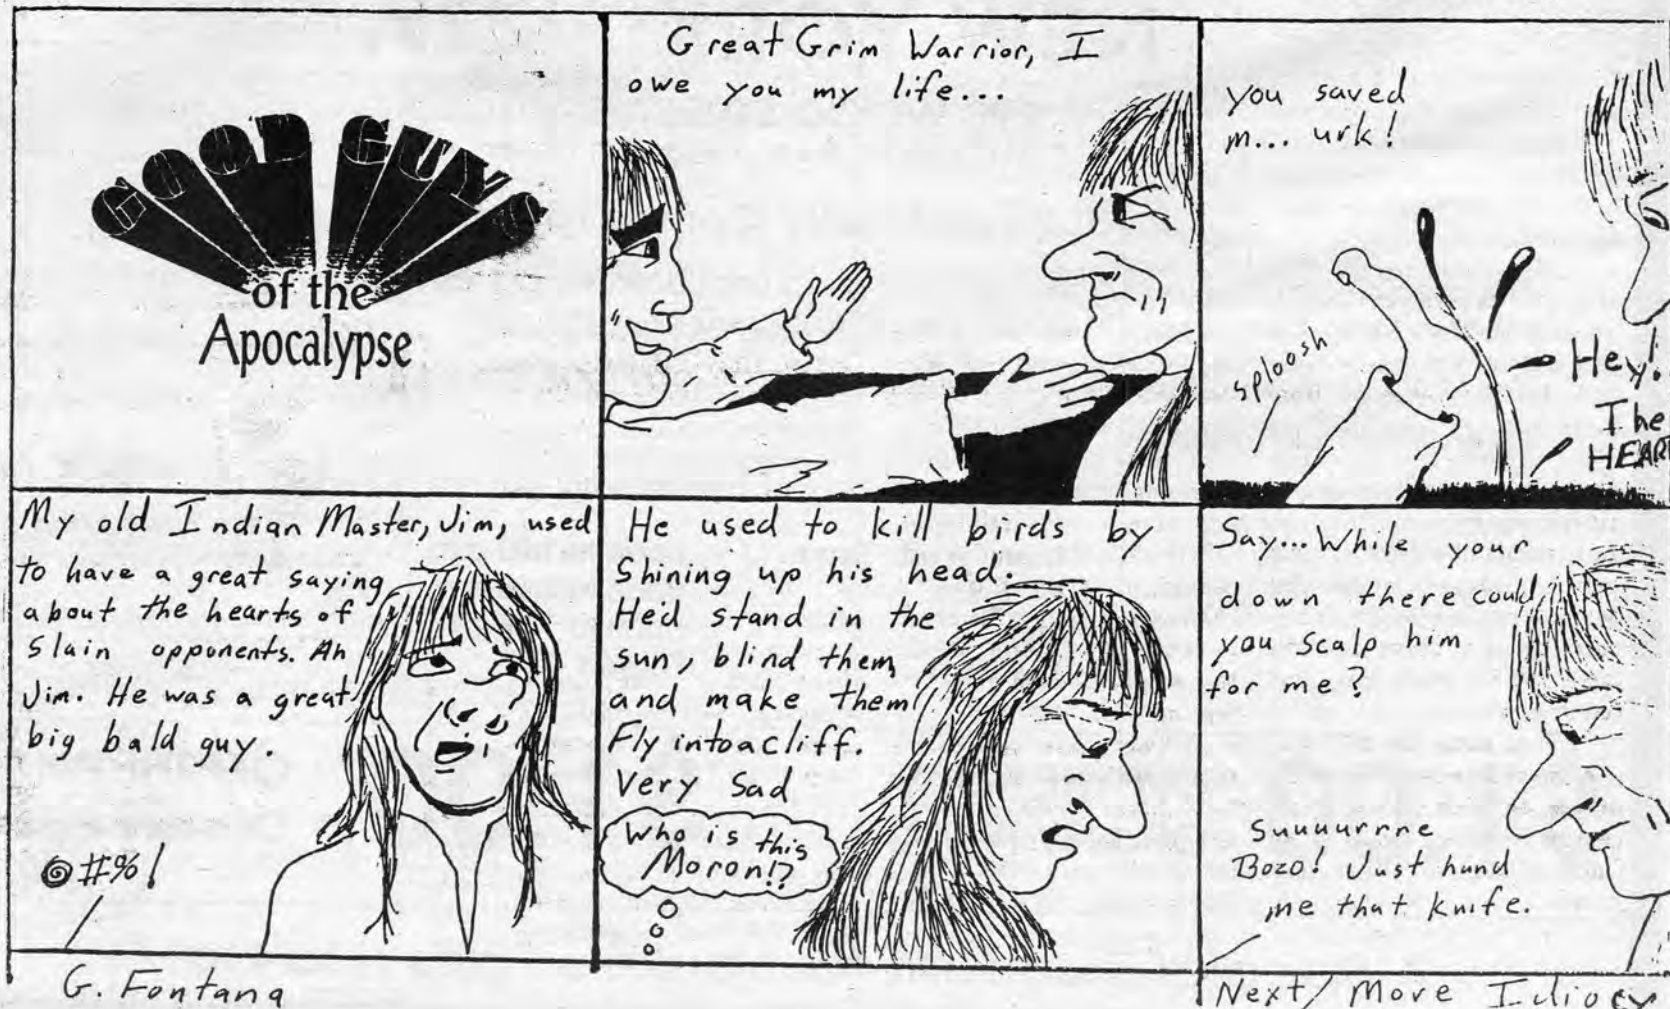 GOOD GUYS
of the
Apocalypse
Great Grim Warrior, I
owe you my life...
you saved
m... urk!
sploosh
Hey!
The
HEART
My old Indian Master, Jim, used
to have a great saying
about the hearts of
slain opponents. Ah
Jim. He was a great
big bald guy.
@#%!
He used to kill birds by
Shining up his head.
He'd stand in the
sun, blind them,
and make them
Fly into a cliff.
Very Sad
Who is this
Moron!?
Say... While your
down there could
you scalp him
for me?
Suuuurrne
Bozo! Just hand
me that knife.
G. Fontana
Next/ More Idiocy